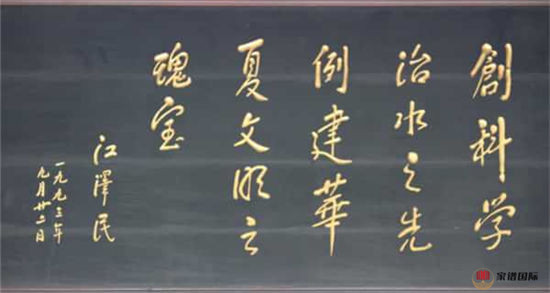 創科学
治水之先
例建華
夏文明之
瑰宝
江澤民
一九九三年
九月廿二日
家谱国际